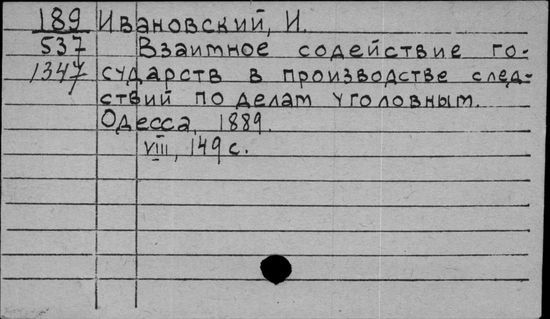 189 Ивановский, И.
537 Взаимное содействие го-
1347 сударств в производстве след-
ствий по делам уголовным.
Одесса, 1889.
VIII, 149 с.